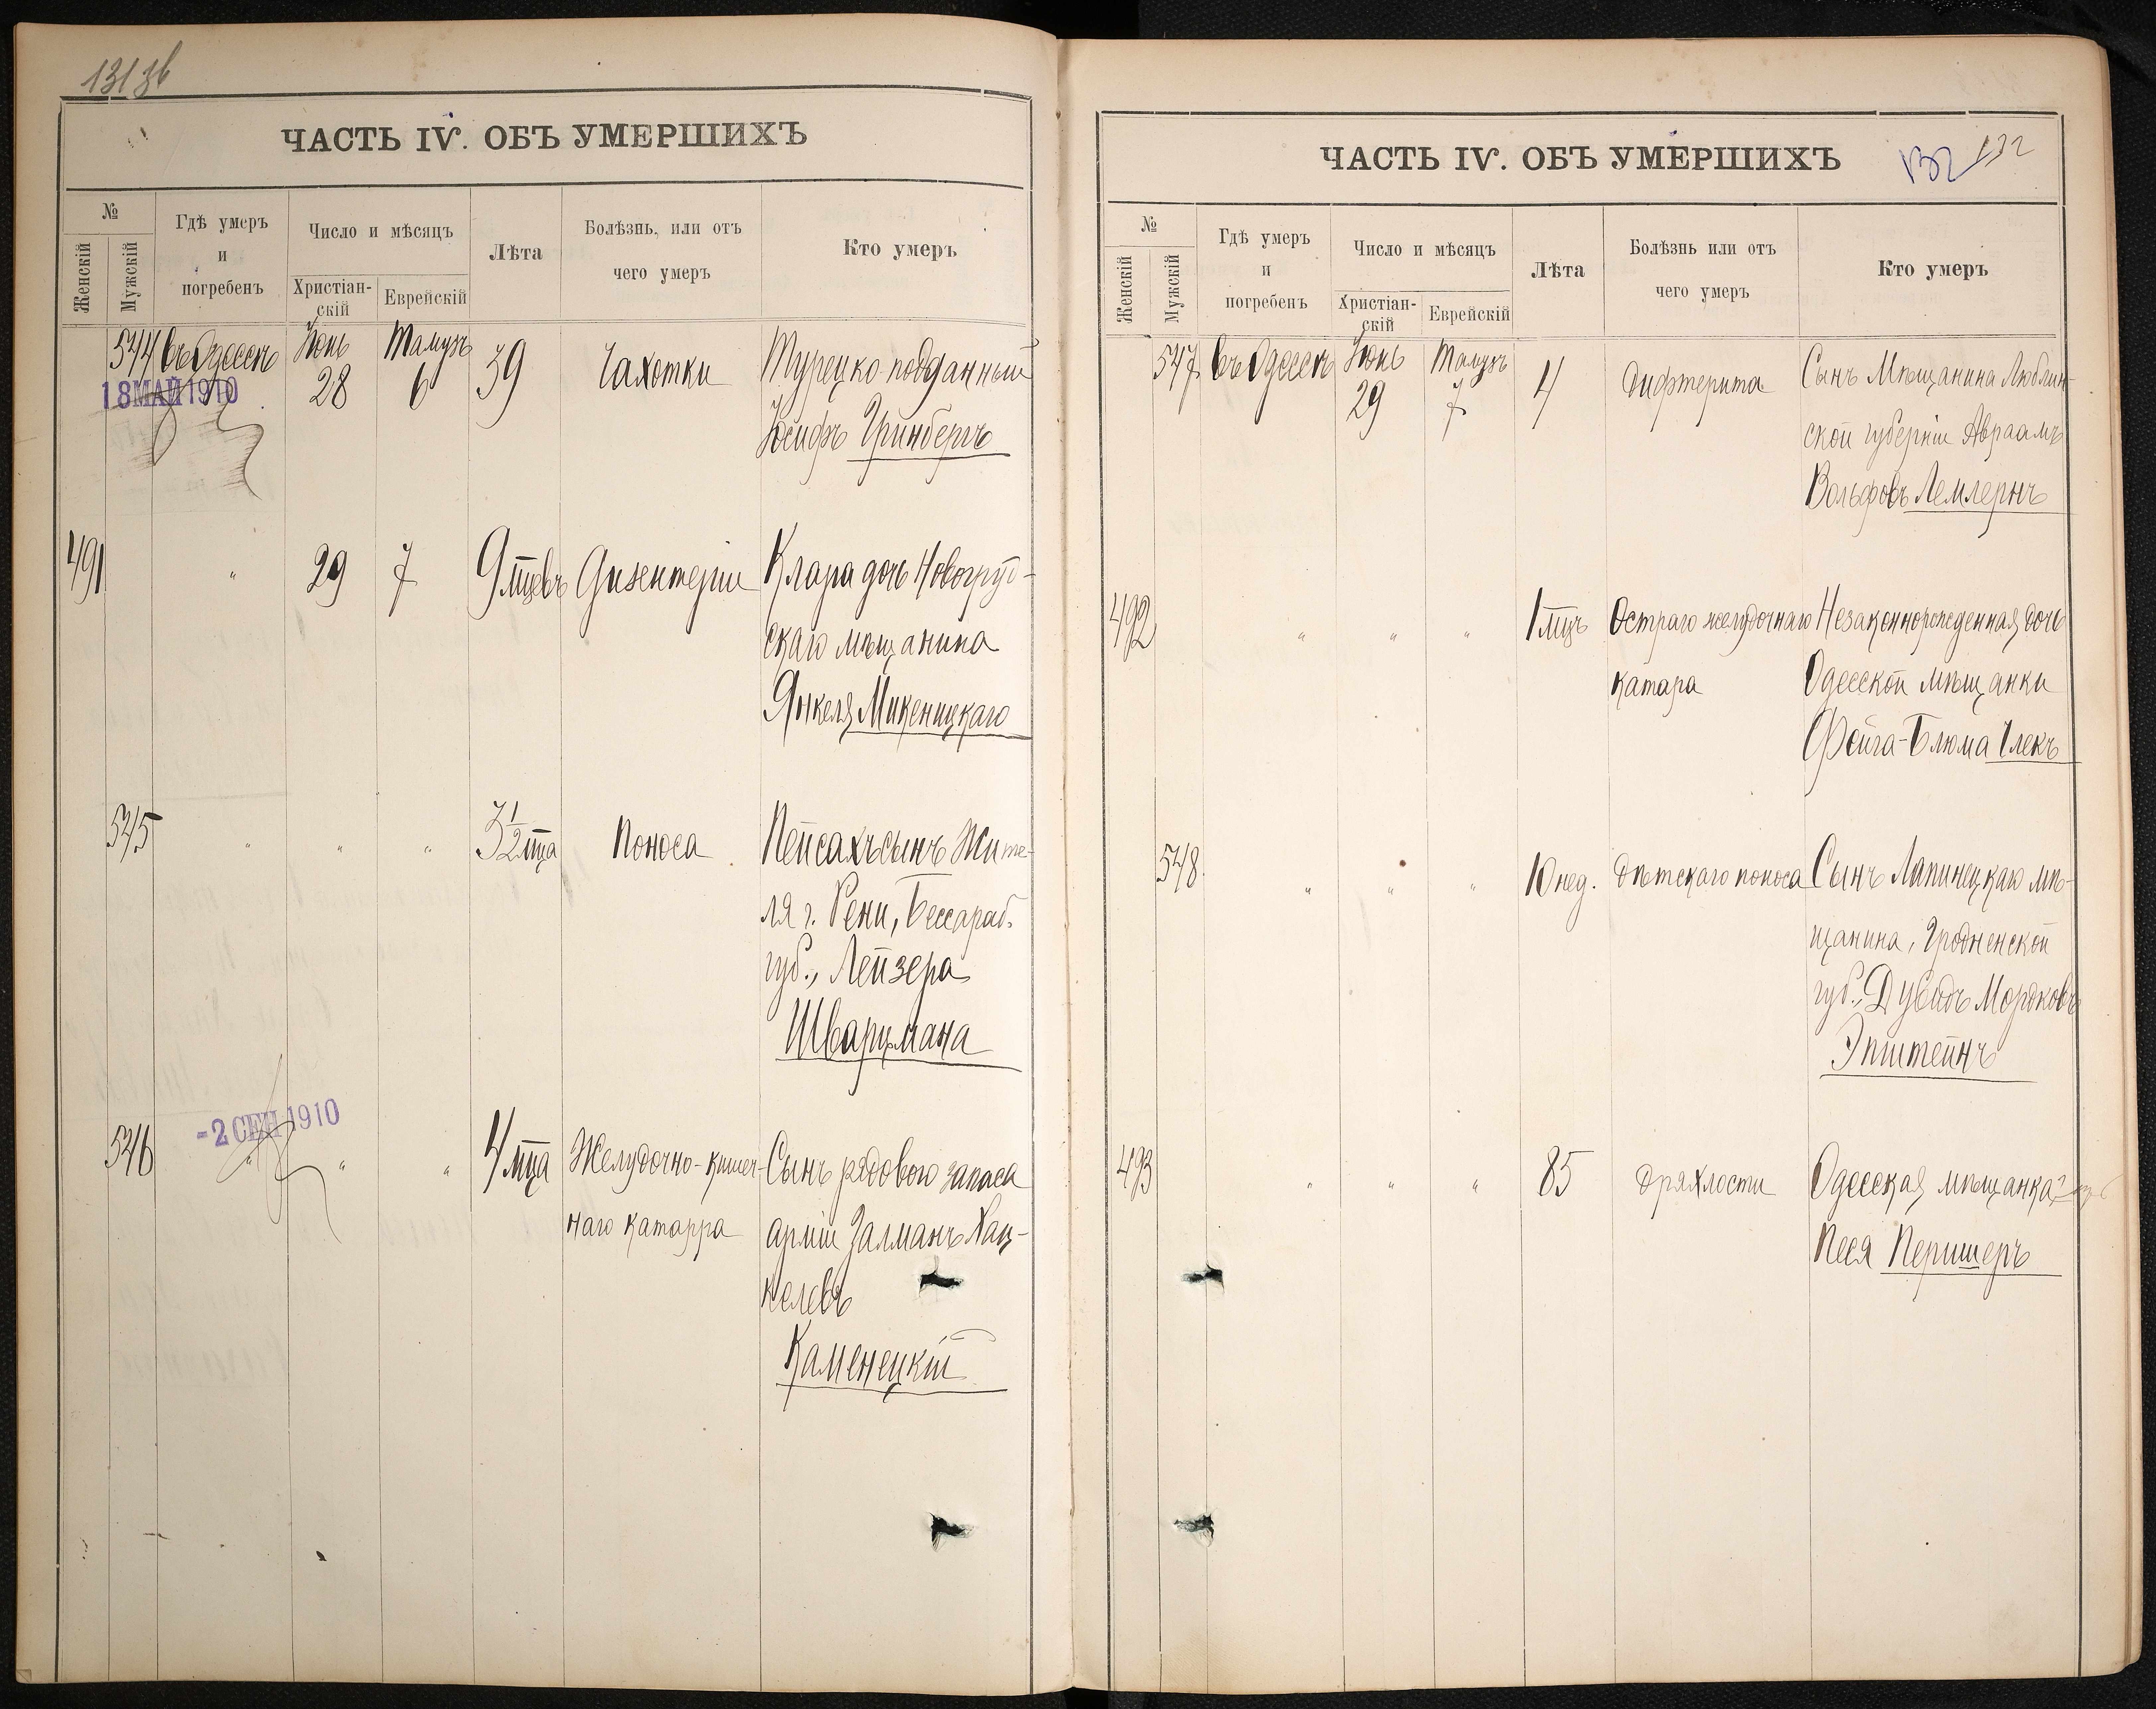 131 зв
ЧАСТЬ IV. ОБЪ УМЕРШИХЪ
№
Женскій
Мужскій
Гдѣ умеръ
и
погребенъ
Число и мѣсяцъ
Христіан-
скій
Еврейскій
Лѣта
Болѣзнь, или отъ
чего умеръ
Кто умеръ
544 въ Одессѣ Іюнь 28 Тамузъ 6 39 Чахотки Турецко-подданный
18 МАЙ 1910
Іосифъ Гринбергъ
491 " 29 7 9 мцевъ Дизентеріи Клара дочь Новогруд-
скаго мѣщанина
Янкеля Микеницкаго
545 " " " 3 1/2 мца Поноса Пейсахъ сынъ Жите-
ля г. Рени, Бессараб.
губ., Лейзера
Шварцмана
-2 СЕН 1910
546 " " " 4 мца Желудочно-кишеч- Сынъ рядового запаса
наго катарра арміи Залманъ Хац-
келевъ
Каменецкій
ЧАСТЬ IV. ОБЪ УМЕРШИХЪ
132 132
№
Женскій
Мужскій
Гдѣ умеръ
и
погребенъ
Число и мѣсяцъ
Христіан-
скій
Еврейскій
Лѣта
Болѣзнь или отъ
чего умеръ
Кто умеръ
547 въ Одессѣ Іюнь 29 Тамузъ 7 4 Дифтерита Сынъ Мѣщанина Люблин-
ской губерніи Авраамъ
Вольфовъ Лемлернъ
492 " " " 1 мцъ Остраго желудочнаго Незаконнорожденная дочь
катара Одесской мѣщанки
Фейга-Блюма Члекъ
548 " " " 10 нед. Дѣтскаго поноса Сынъ Лапинецкаго мѣ-
щанина, Гродненской
губ., Дувидъ Мордковъ
Эпштейнъ
493 " " " 85 Дряхлости Одесская мѣщанка
Песя Перишеръ